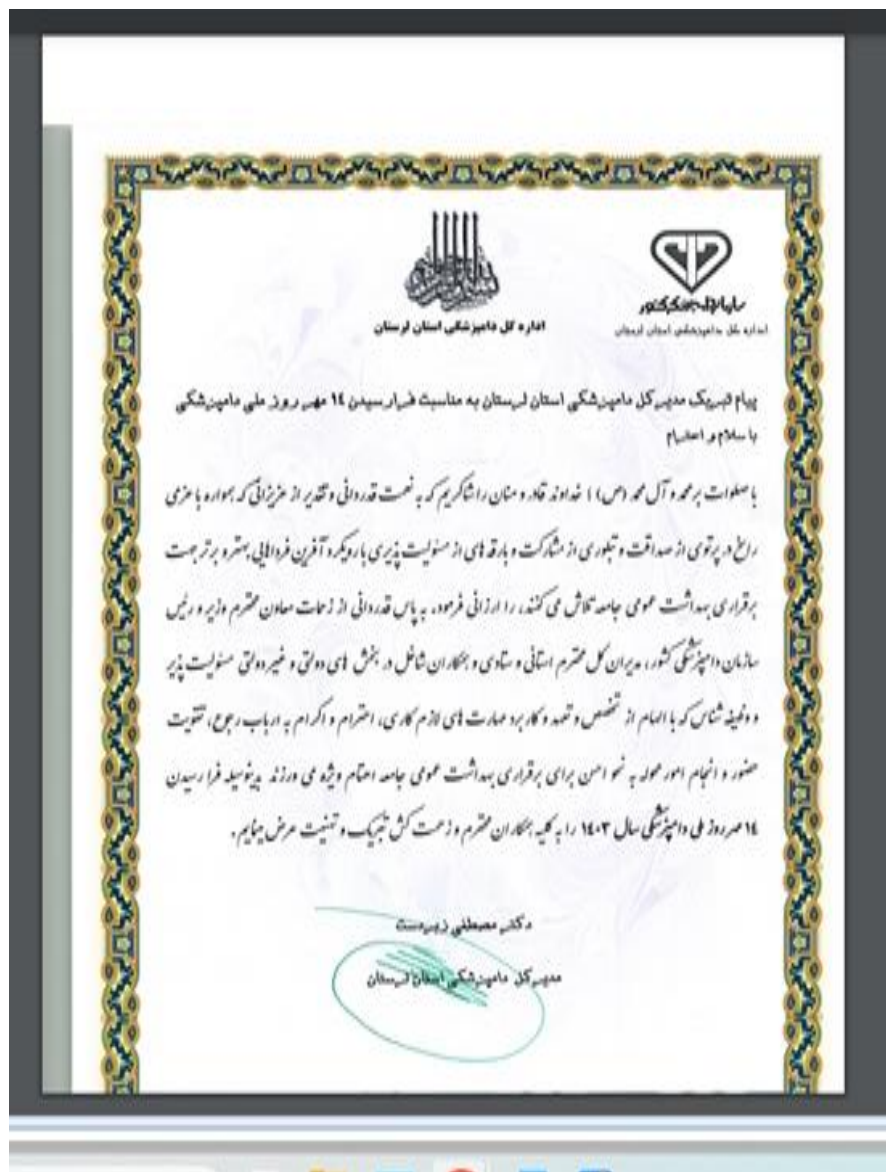 اداره کل دامپزشکی استان لرستان
سازمان دامپزشکی کشور
اداره کل دامپزشکی استان لرستان
پیام تبریک مدیر کل دامپزشکی استان لرستان به مناسبت فرا رسیدن ١٤ مهر روز ملی دامپزشکی
با سلام و احترام
با صلوات بر محمد و آل محمد (ص) ؛ خداوند قادر و منان را شاکریم که به نعمت قدردانی و تقدیر از عزیزانی که همواره با عزمی
راسخ در پرتوی از صداقت و تبلوری از مشارکت و بارقه های از مسئولیت پذیری با رویکرد آفرین فرداهایی بهتر و برتر جهت
برقراری بهداشت عمومی جامعه تلاش می کنند، را ارزانی فرمود، به پاس قدردانی از زحمات معاون محترم وزیر و رئیس
سازمان دامپزشکی کشور، مدیران کل محترم استانی و ستادی و همکاران شاغل در بخش های دولتی و غیر دولتی مسئولیت پذیر
و وظیفه شناس که با الهام از تخصص و تعهد و کاربرد مهارت های لازم کاری، احترام و اکرام به ارباب رجوع، تقویت
حضور و انجام امور محوله به نحو احسن برای برقراری بهداشت عمومی جامعه اهتمام ویژه می ورزند بدینوسیله فرا رسیدن
١٤ مهر روز ملی دامپزشکی سال ١٤٠٣ را به کلیه همکاران محترم و زحمت کش تبریک و تهنیت عرض مینمایم.
دکتر مصطفی زبردست
مدیر کل دامپزشکی استان لرستان